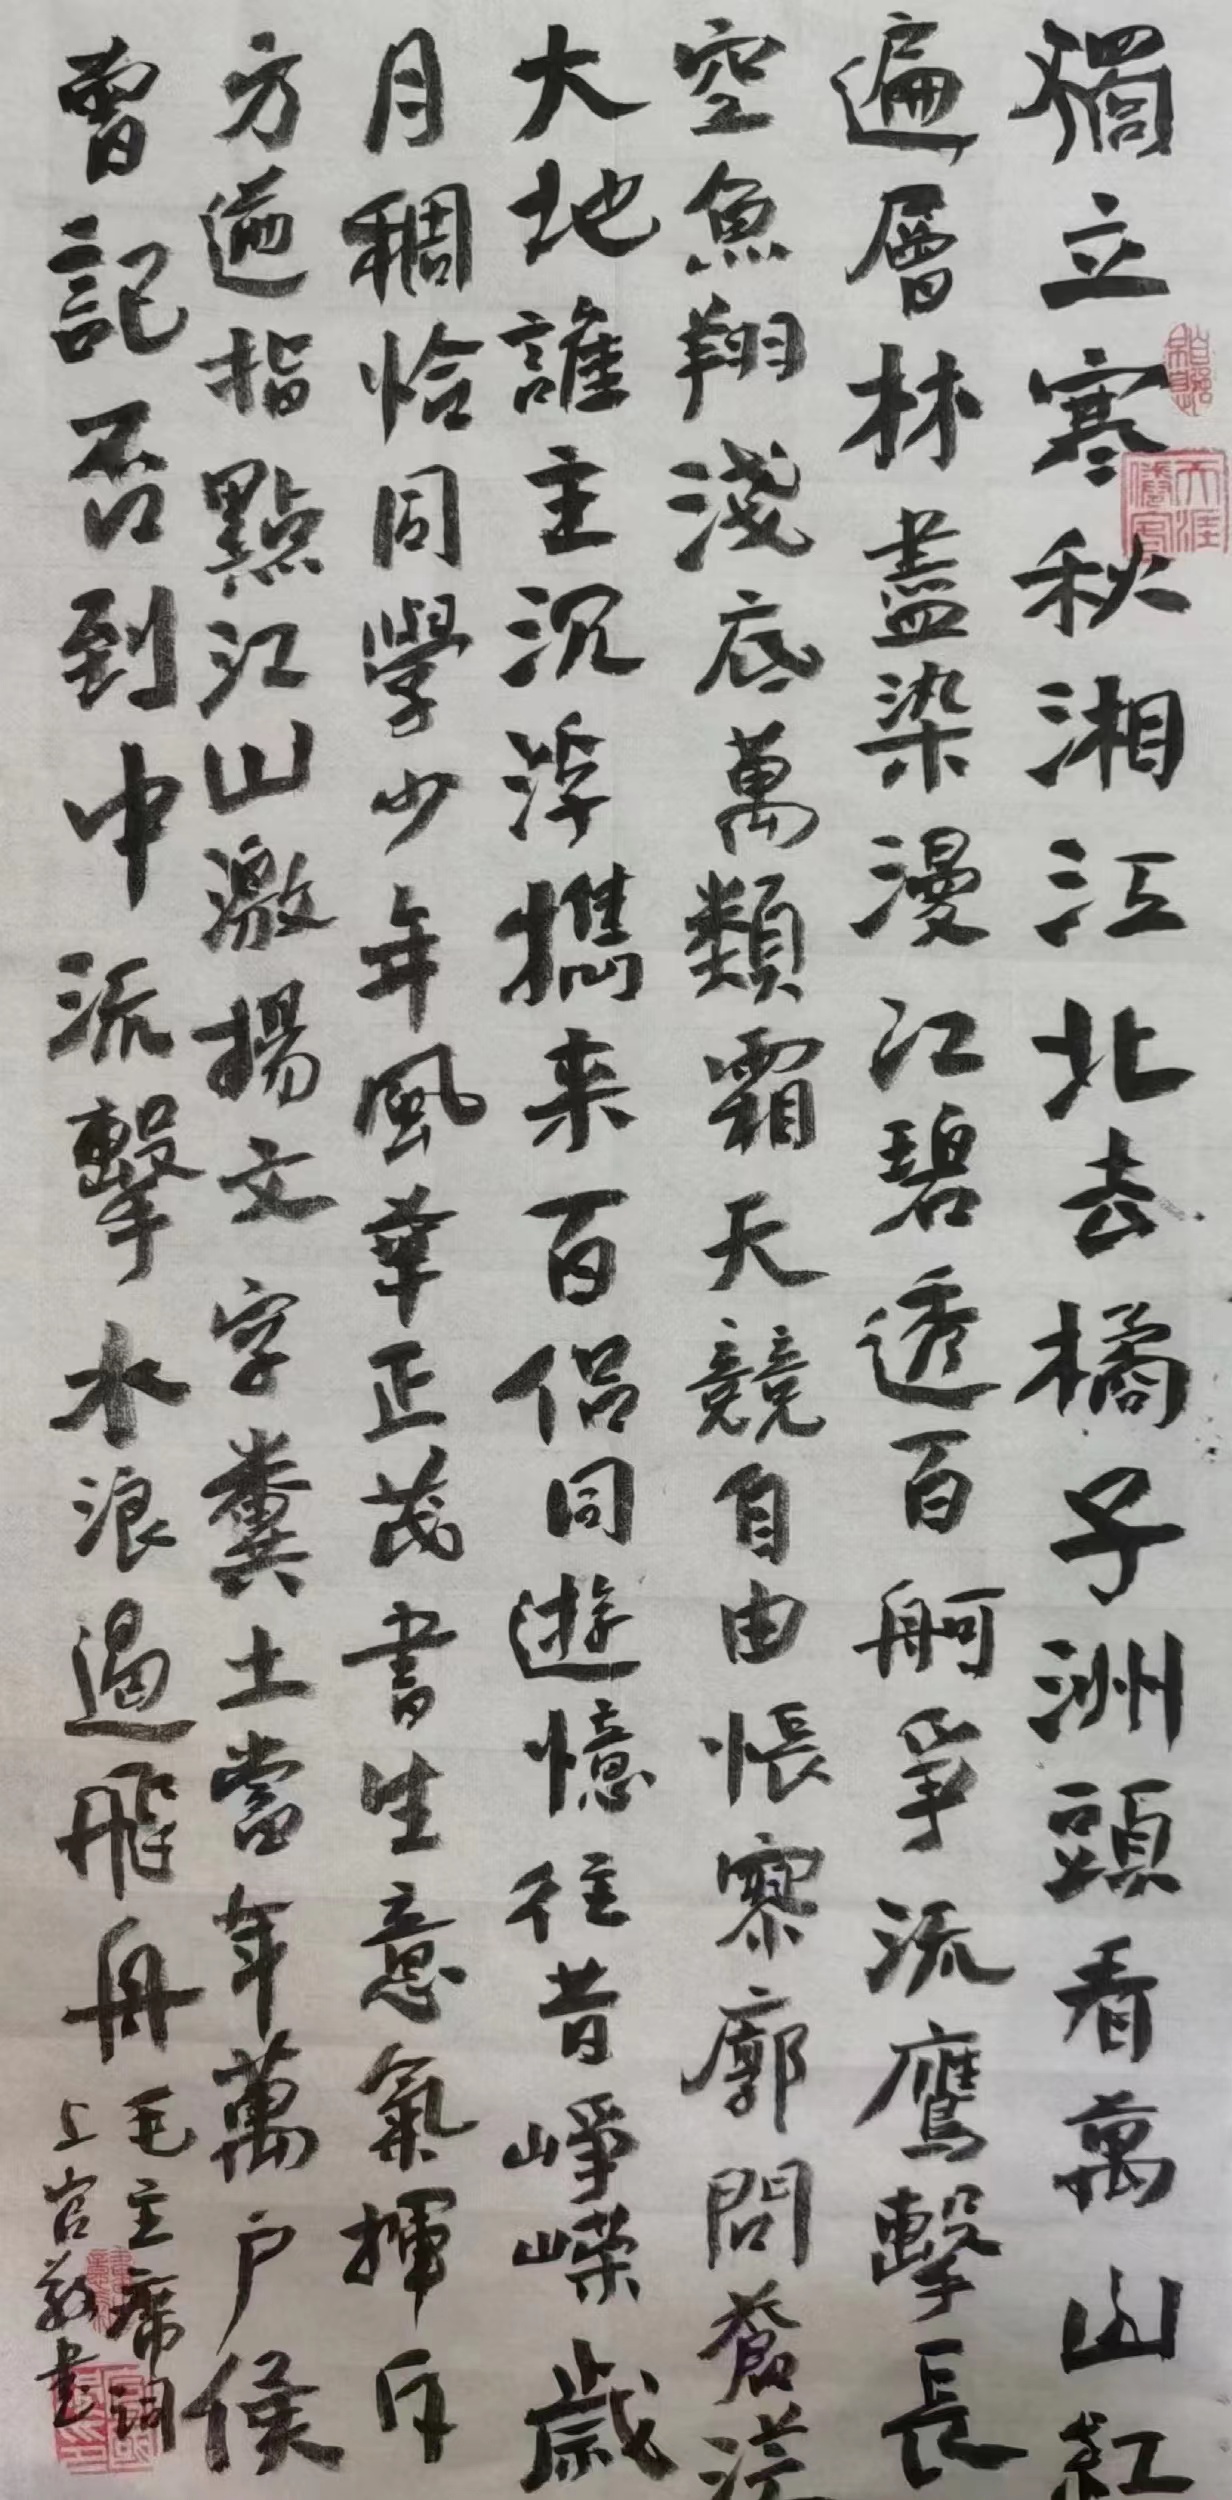 獨立寒秋湘江北去橘子洲頭看萬山紅
遍層林盡染漫江碧透百舸爭流鷹擊長
空魚翔淺底萬類霜天競自由悵寥廓問蒼茫
大地誰主沉浮攜来百侣同遊憶往昔崢嶸歲
月稠恰同學少年風華正茂書生意氣揮斥
方遒指點江山激揚文字糞土當年萬户侯
曾記否到中流擊水浪遏飛舟
毛主席詞
上官敬書